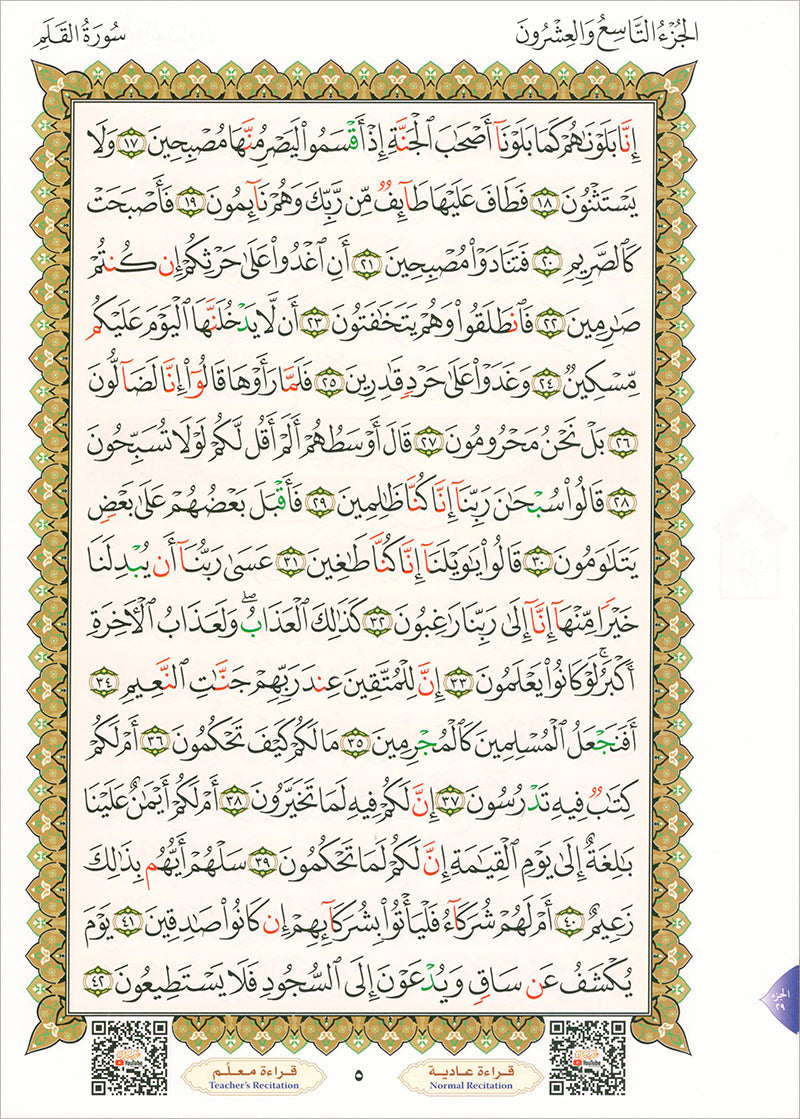 الجُزْءُ التَّاسِعُ وَالعِشْرُونَ
سُورَةُ القَلَمِ
إِنَّا بَلَوْنَٰهُمْ كَمَا بَلَوْنَآ أَصْحَٰبَ ٱلْجَنَّةِ إِذْ أَقْسَمُوا۟ لَيَصْرِمُنَّهَا مُصْبِحِينَ ١٧ وَلَا
يَسْتَثْنُونَ ١٨ فَطَافَ عَلَيْهَا طَآئِفٌ مِّن رَّبِّكَ وَهُمْ نَآئِمُونَ ١٩ فَأَصْبَحَتْ
كَٱلصَّرِيمِ ٢٠ فَتَنَادَوْا۟ مُصْبِحِينَ ٢١ أَنِ ٱغْدُوا۟ عَلَىٰ حَرْثِكُمْ إِن كُنتُمْ
صَٰرِمِينَ ٢٢ فَٱنطَلَقُوا۟ وَهُمْ يَتَخَٰفَتُونَ ٢٣ أَن لَّا يَدْخُلَنَّهَا ٱلْيَوْمَ عَلَيْكُم
مِّسْكِينٌ ٢٤ وَغَدَوْا۟ عَلَىٰ حَرْدٍ قَٰدِرِينَ ٢٥ فَلَمَّا رَأَوْهَا قَالُوٓا۟ إِنَّا لَضَآلُّونَ
٢٦ بَلْ نَحْنُ مَحْرُومُونَ ٢٧ قَالَ أَوْسَطُهُمْ أَلَمْ أَقُل لَّكُمْ لَوْلَا تُسَبِّحُونَ
٢٨ قَالُوا۟ سُبْحَٰنَ رَبِّنَآ إِنَّا كُنَّا ظَٰلِمِينَ ٢٩ فَأَقْبَلَ بَعْضُهُمْ عَلَىٰ بَعْضٍ
يَتَلَٰوَمُونَ ٣٠ قَالُوا۟ يَٰوَيْلَنَآ إِنَّا كُنَّا طَٰغِينَ ٣١ عَسَىٰ رَبُّنَآ أَن يُبْدِلَنَا
خَيْرًا مِّنْهَآ إِنَّآ إِلَىٰ رَبِّنَا رَٰغِبُونَ ٣٢ كَذَٰلِكَ ٱلْعَذَابُ ۖ وَلَعَذَابُ ٱلْءَاخِرَةِ
أَكْبَرُ ۚ لَوْ كَانُوا۟ يَعْلَمُونَ ٣٣ إِنَّ لِلْمُتَّقِينَ عِندَ رَبِّهِمْ جَنَّٰتِ ٱلنَّعِيمِ ٣٤
أَفَنَجْعَلُ ٱلْمُسْلِمِينَ كَٱلْمُجْرِمِينَ ٣٥ مَا لَكُمْ كَيْفَ تَحْكُمُونَ ٣٦ أَمْ لَكُمْ
كِتَٰبٌ فِيهِ تَدْرُسُونَ ٣٧ إِنَّ لَكُمْ فِيهِ لَمَا تَخَيَّرُونَ ٣٨ أَمْ لَكُمْ أَيْمَٰنٌ عَلَيْنَا
بَٰلِغَةٌ إِلَىٰ يَوْمِ ٱلْقِيَٰمَةِ إِنَّ لَكُمْ لَمَا تَحْكُمُونَ ٣٩ سَلْهُمْ أَيُّهُم بِذَٰلِكَ
زَعِيمٌ ٤٠ أَمْ لَهُمْ شُرَكَآءُ فَلْيَأْتُوا۟ بِشُرَكَآئِهِمْ إِن كَانُوا۟ صَٰدِقِينَ ٤١ يَوْمَ
يُكْشَفُ عَن سَاقٍ وَيُدْعَوْنَ إِلَى ٱلسُّجُودِ فَلَا يَسْتَطِيعُونَ ٤٢
الجزء
٢٩
قراءة عادية
Normal Recitation
٥
قراءة معلّم
Teacher's Recitation
YouTube
YouTube